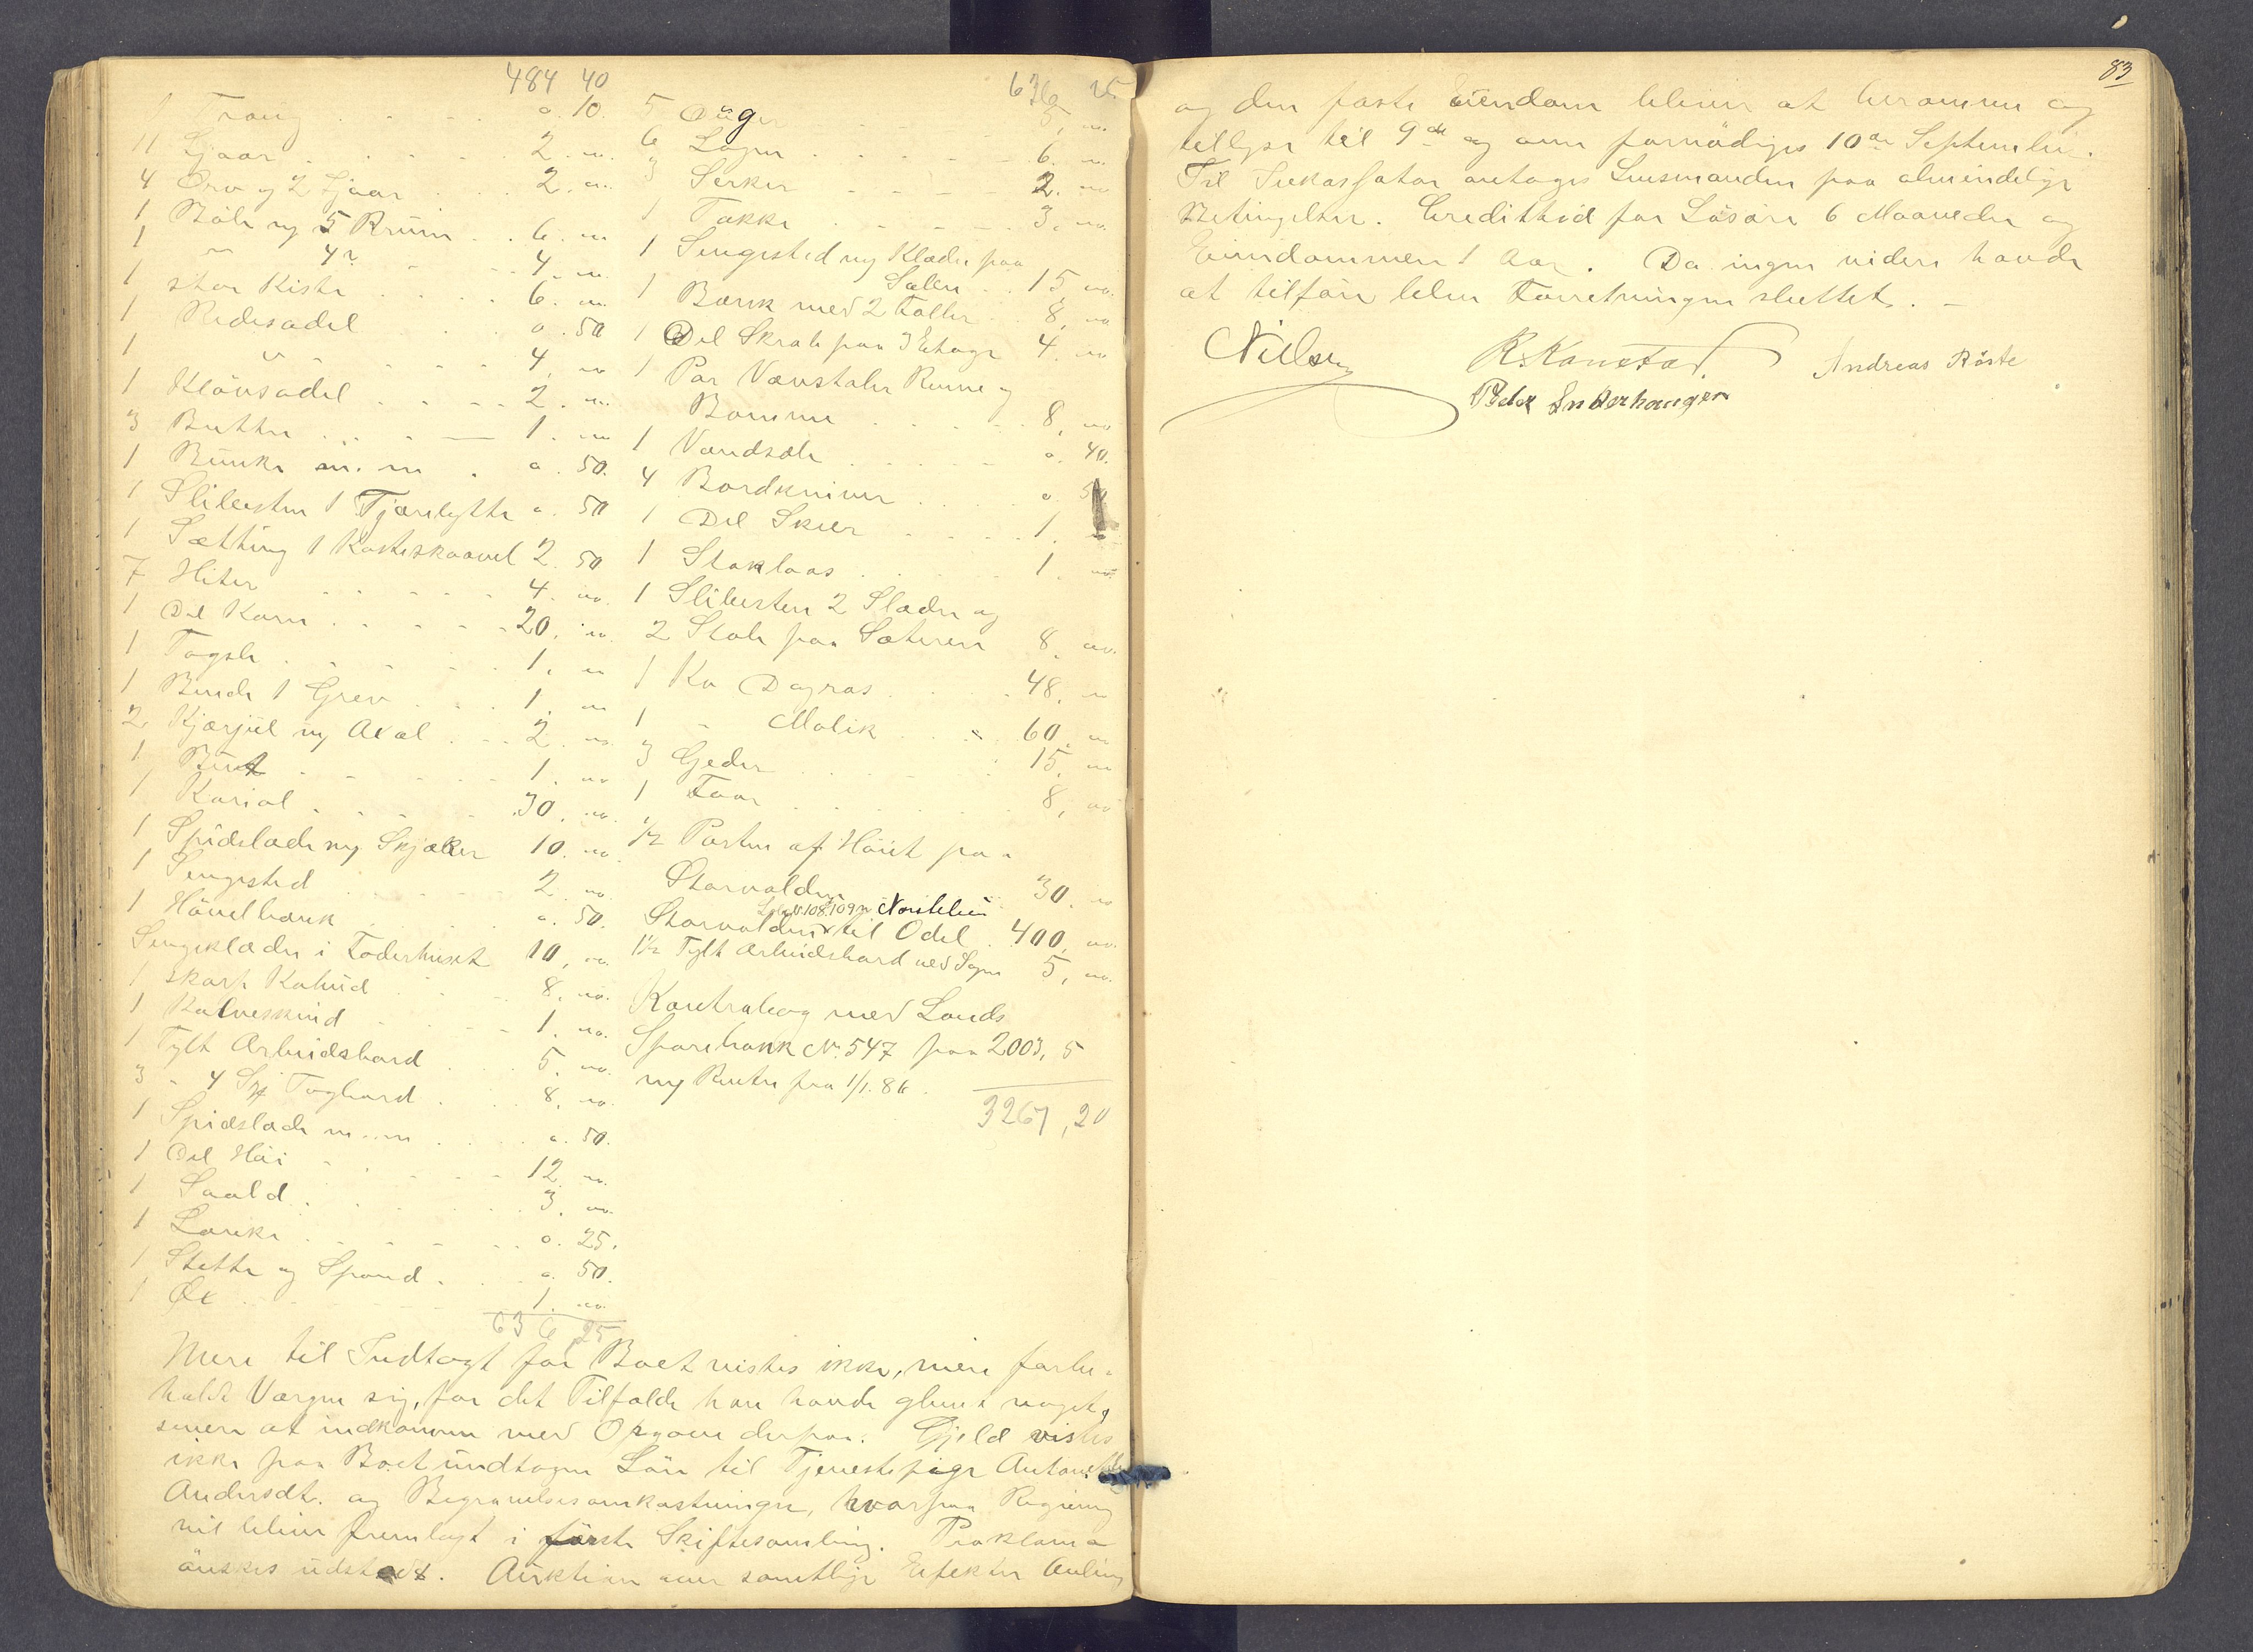 484 40
1 Traug . . . . o. 10.
11 Ljaar . . . . 2. "
4 Orv og 2 Ljaar . . 2. "
1 Böle og 5 Bruin . . 6. "
1 " 4? . . 4. "
1 stor Kiste . . . . 6. "
1 Redesadel . . o. 50
1 " . . . . 4. "
1 Klövsadel . . . . 2. "
3 Butter . . . . 1. "
1 Bunke m. m . o. 50.
1 Slibesten 1 Tjærebytte o. 50
1 Sætting 1 Kasteskaavel 2. 50
7 Hiter . . . . 4. "
1 Del Korn . . . . 20. "
1 Togsle . . . . 1. "
1 Bende 1 Grev . . . 1. "
2 Kjærjul og Axal . . 2. "
1 . . . . 1. "
1 Kariol . . . . 30. "
1 Spidslæde og Skjæker 10. "
1 Sengested . . . . 2. "
1 Hövelbænk . . . o. 50.
Sengeklæder i Föderhuset 10. "
1 skarp Kohud . . . 8. "
1 Kalveskind . . . 1. "
1 Tylt Arbeidsbord . . . 5. "
3 " 4 Togbord . . 8. "
1 Spidslæde m. m . . . o. 50.
1 Del Höi . . . . 12. "
1 Saald . . . . 3. "
1 Lænke . . . . o. 25.
1 Stette og Spand . . o. 50.
1 Øx . . . . 1. "
636 25
636 25
5 Auger . . . . 5, "
6 Lagen . . . . 6. "
3 Serker . . . . 2. "
1 Takke . . . . 3. "
1 Sengested og Klæder paa
Salen . . 15, "
1 Bænk med 2 Faller . 8, "
1 Del Skrab paa 3 Etage 4. "
1 Par Vævstoler Renne og
Bomme . . . . 8, "
1 Vandsæle . . . . o. 40.
4 Bordkniver . . . o. 50
1 Del Skeer . . . . 1. "
1 Staklaas . . . . 1. "
1 Slibesten 2 Slæder og
2 Stole paa Sæteren 8. "
1 Ko Dagros . . . 48, "
1 " Molik . . 60. "
3 Geder . . . . 15. "
1 Faar . . . . 8, "
1/2 Parten af Höiet paa
Storvolden . . 30. "
Löbe N. 108, 109 Nordlien
Storvolden til Odel . 400, "
1 1/2 Tylt Arbeidsbord ved Sagen 5, "
Kontrabog med Lands
Sparebank No. 547 paa 2003, 5
og Renter fra 1/1. 86 .
3267,20
Mere til Indtægt for Boet vistes ikke, men forbe-
holdt Værgen sig, for det Tilfælde han havde glemt noget,
senere at indkomme med Opgave derpaa. Gjeld vistes
ikke paa Boet undtagen Lön til Tjenestepige Antonette
Andersdt. og Begravelsesomkostninger, hvorpaa Regning
vil blive fremlagt i förste Skiftesamling. Proklama
önskes udstedt. Auktion over samtlige Effekter Avling
83
og den faste Eiendom bliver at beramme og
tillyse til 9de og om fornödiges 10de September.
Til Inkassator antages Lensmanden paa almindelige
Betingelser. Credittid for Lösöre 6 Maaneder og
Eiendommen 1 Aar. Da ingen videre havde
at tilföre blev Forretningen sluttet. -
Nielsen R. Kanstad. Andreas Röste
Peder Inderhaugen